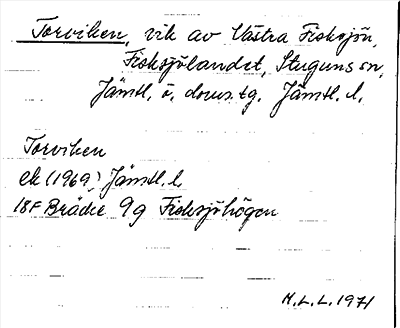 Torviken, vik av Västra Fisksjön,
Fisksjölandet, Stuguns sn,
Jämtl. ö. doms. tg. Jämtl. l.
Torviken
ek (1969) Jämtl. l.
18F Bräcke 9g Fisksjöhögen
M.L.L. 1971